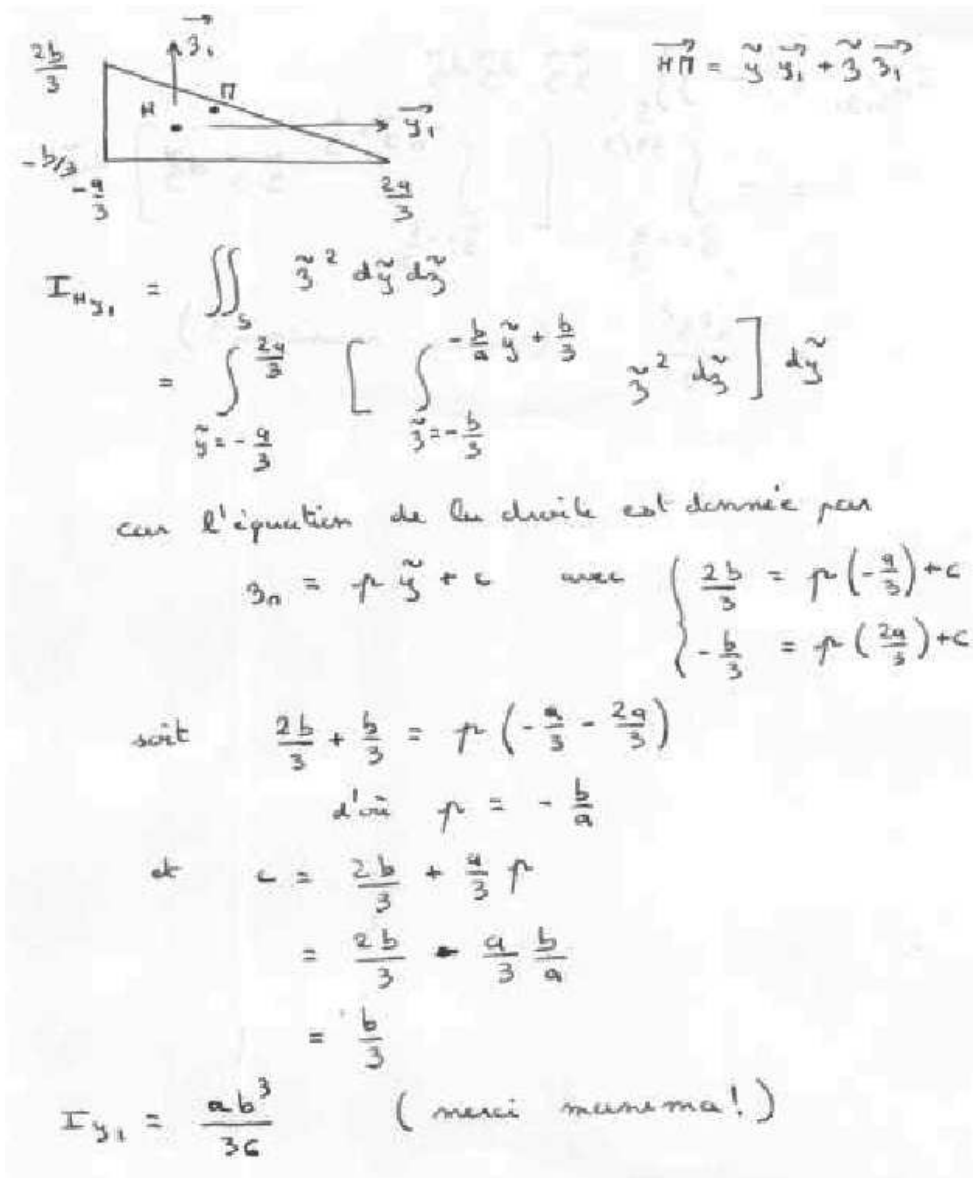 $\frac{2b}{3}$
$\vec{z_1}$
$\overrightarrow{HM} = \tilde{y}\,\vec{y_1} + \tilde{z}\,\vec{z_1}$
H M $\vec{y_1}$
$-b/3$
$-\frac{a}{3}$ $\frac{2a}{3}$
$I_{Hy_1} = \iint_S \tilde{z}^2 \, d\tilde{y} \, d\tilde{z}$
$= \int_{\tilde{y}=-\frac{a}{3}}^{\frac{2a}{3}} \left[ \int_{\tilde{z}=-\frac{b}{3}}^{-\frac{b}{a}\tilde{y}+\frac{b}{3}} \tilde{z}^2 \, d\tilde{z} \right] d\tilde{y}$
car l'équation de la droite est donnée par
$z_n = p\,\tilde{y} + c$ avec $\begin{cases} \frac{2b}{3} = p\left(-\frac{a}{3}\right)+c \\ -\frac{b}{3} = p\left(\frac{2a}{3}\right)+c \end{cases}$
soit $\frac{2b}{3} + \frac{b}{3} = p\left(-\frac{a}{3} - \frac{2a}{3}\right)$
d'où $p = -\frac{b}{a}$
et $c = \frac{2b}{3} + \frac{a}{3}\,p$
$= \frac{2b}{3} - \frac{a}{3}\frac{b}{a}$
$= \frac{b}{3}$
$I_{y_1} = \frac{ab^3}{36}$ (merci maxima!)